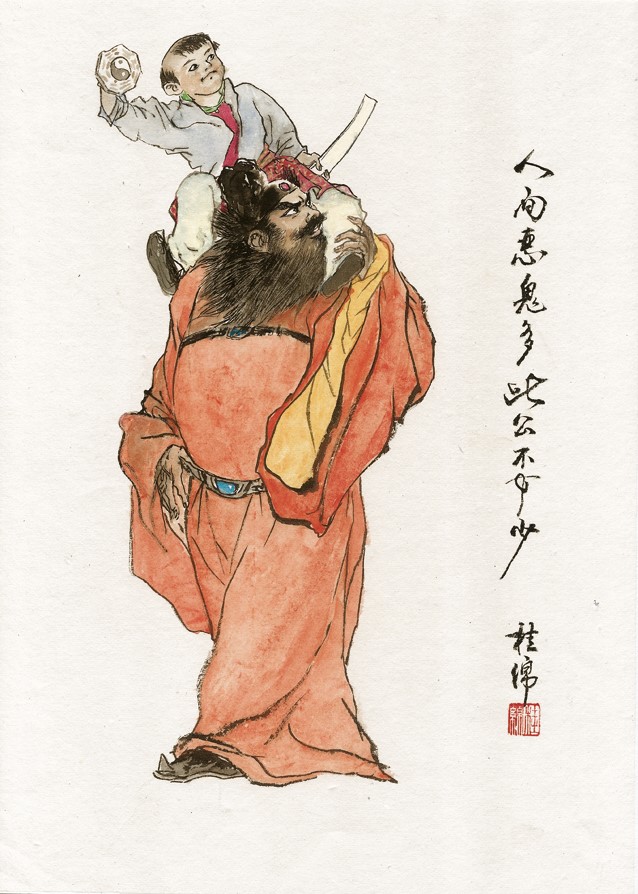 人间恶鬼多此公不可少
桂绵